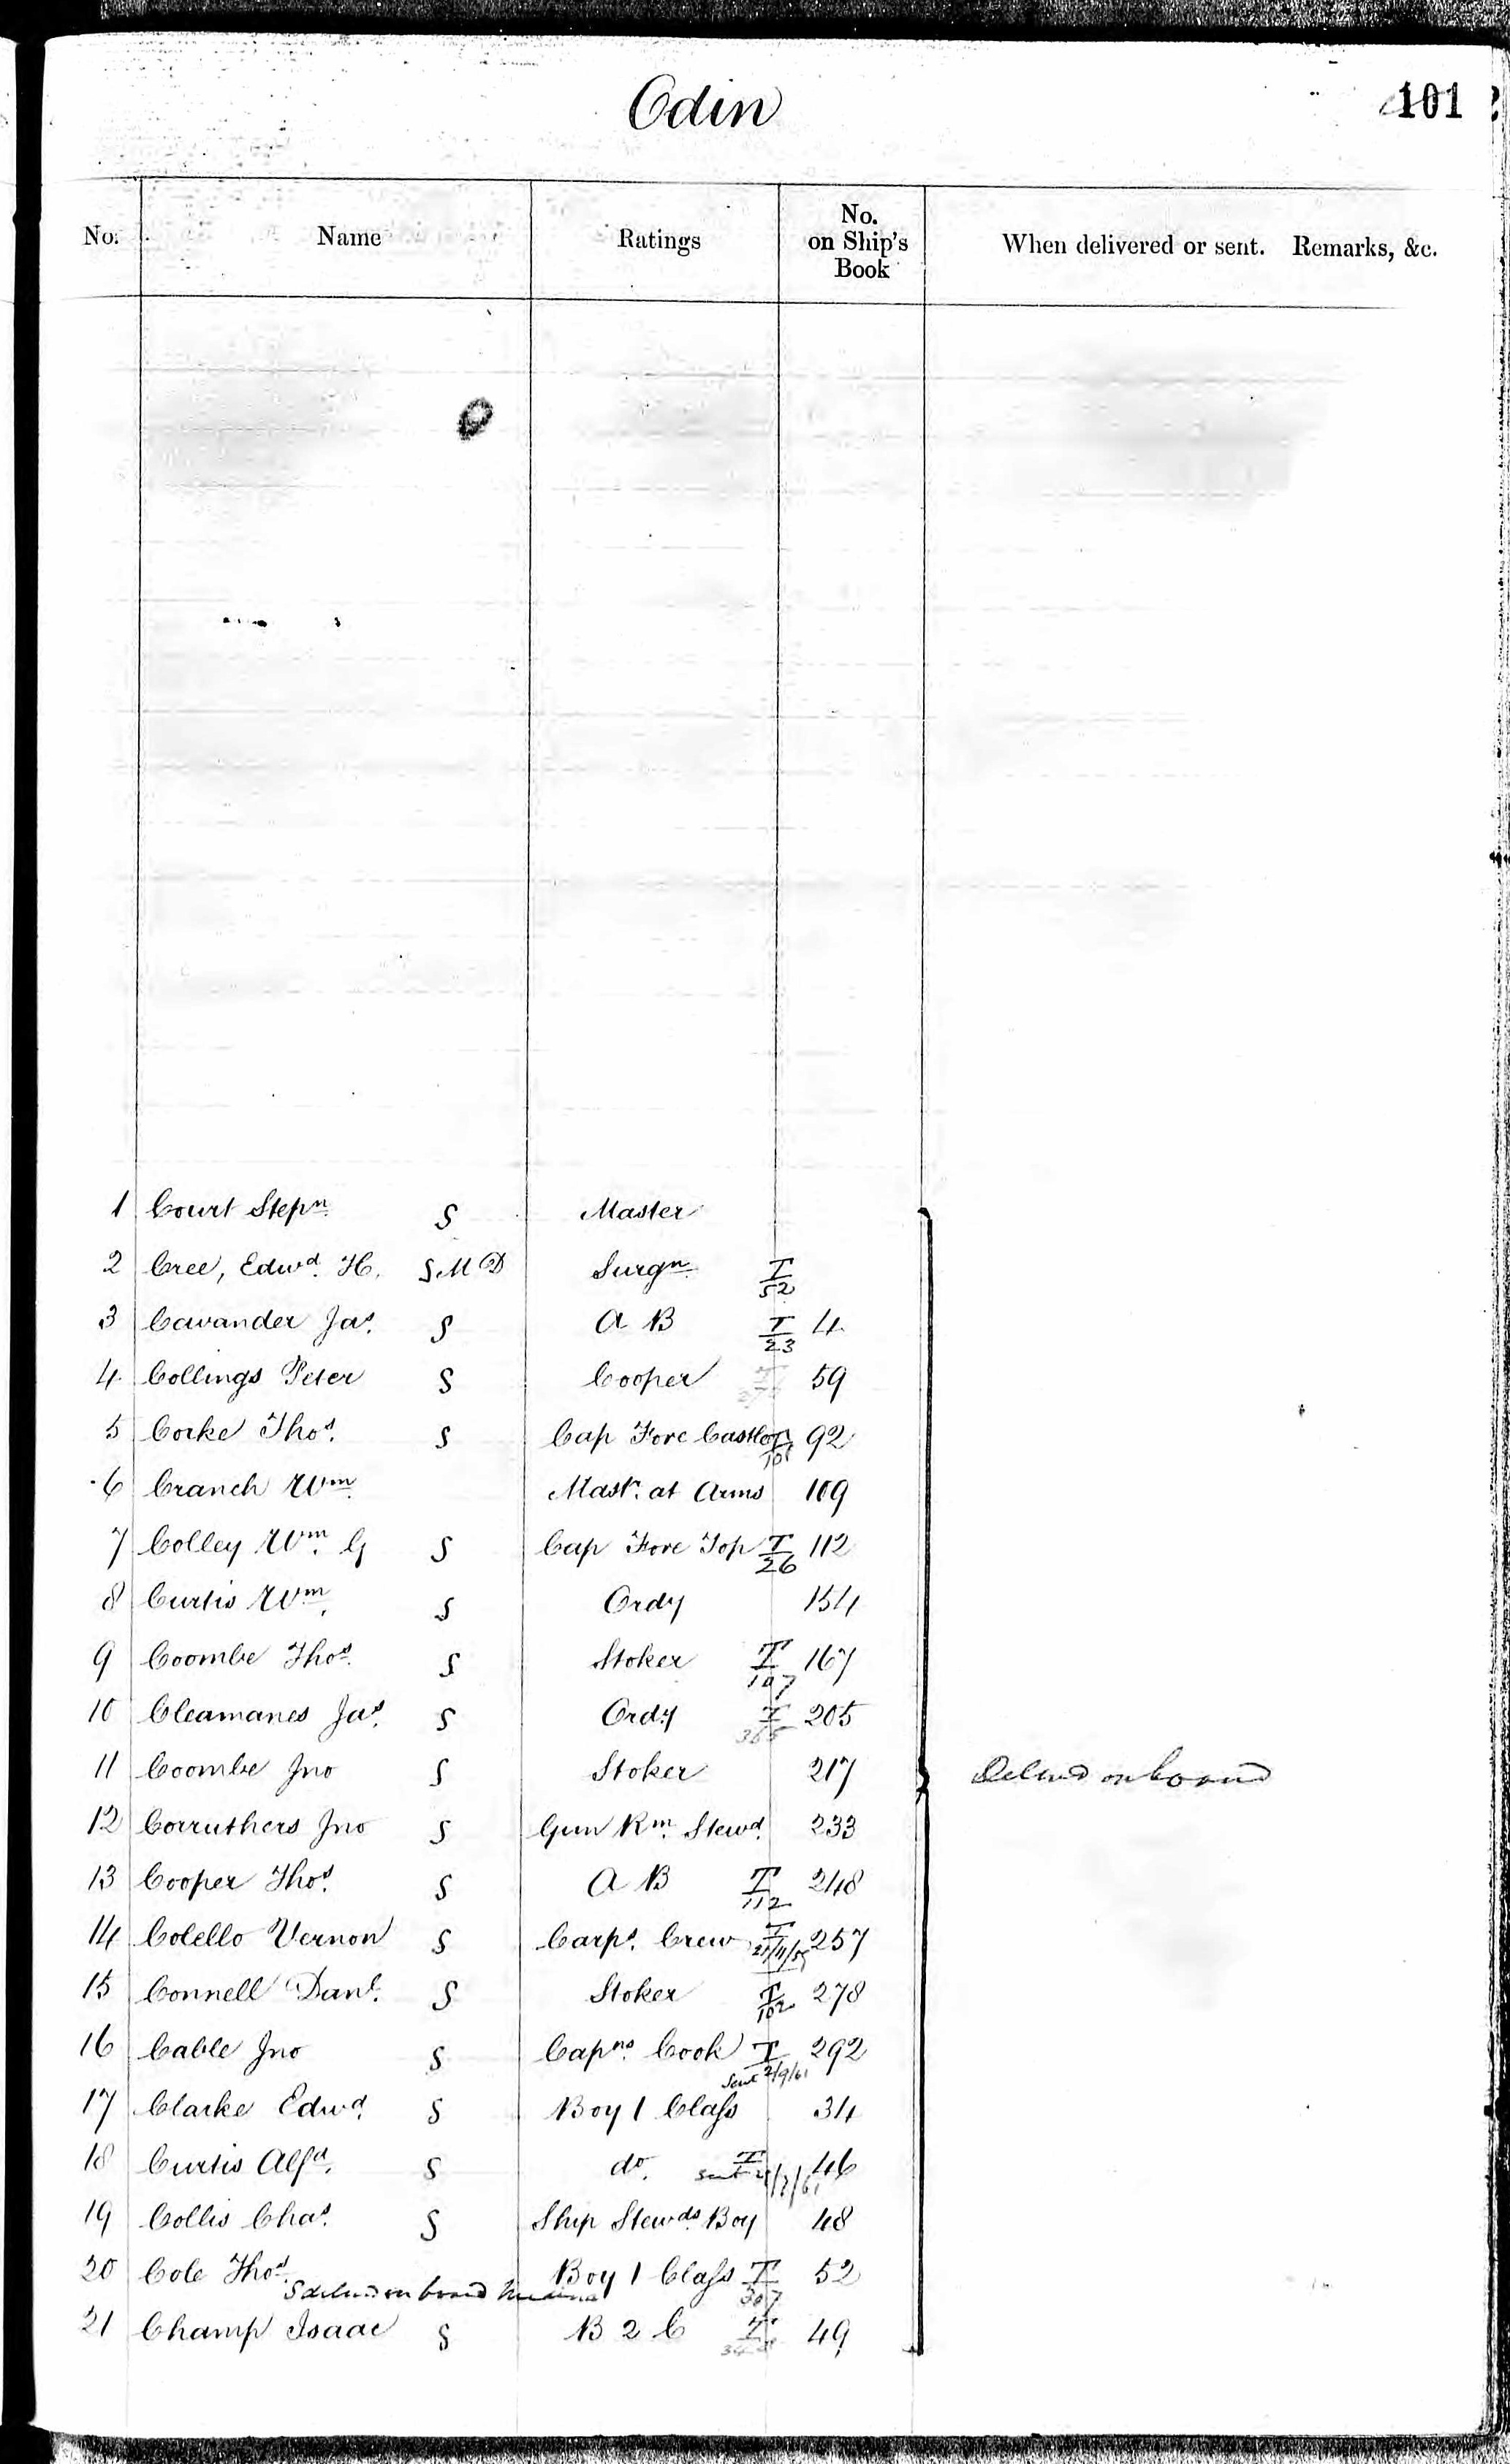 Odin
101
No. Name Ratings No. on Ship's Book When delivered or sent. Remarks, &c.
1 Court Stepn. S Master
2 Cree, Edwd. H. S. M D Surgn. T/52
3 Cavander Jas. S A B T/23 4
4 Collings Peter S Cooper T 59
5 Corke Thos. S Cap Fore Castle T/101 92
6 Cranch Wm. Mastr. at Arms 109
7 Colley Wm. G S Cap Fore Top T/26 112
8 Curtis Wm. S Ordy 154
9 Coombe Thos. S Stoker T/107 167
10 Cleamanes Jas. S Ordy T/365 205
11 Coombe Jno S Stoker 217 Delivd on board
12 Corruthers Jno S Gun Rm. Stewd. 233
13 Cooper Thos. S A B T/112 248
14 Colello Vernon S Carps. Crew T 257
15 Connell Danl. S Stoker T/102 278
16 Cable Jno S Capns. Cook T 292
sent 2/9/61
17 Clarke Edwd. S Boy 1 Class 34
18 Curtis Alfd. S do. T sent 46
19 Collis Chas. S Ship Stewds. Boy 48
20 Cole Thos. Boy 1 Class T/307 52
S delivd on board
21 Champ Isaac S B 2 C T 49